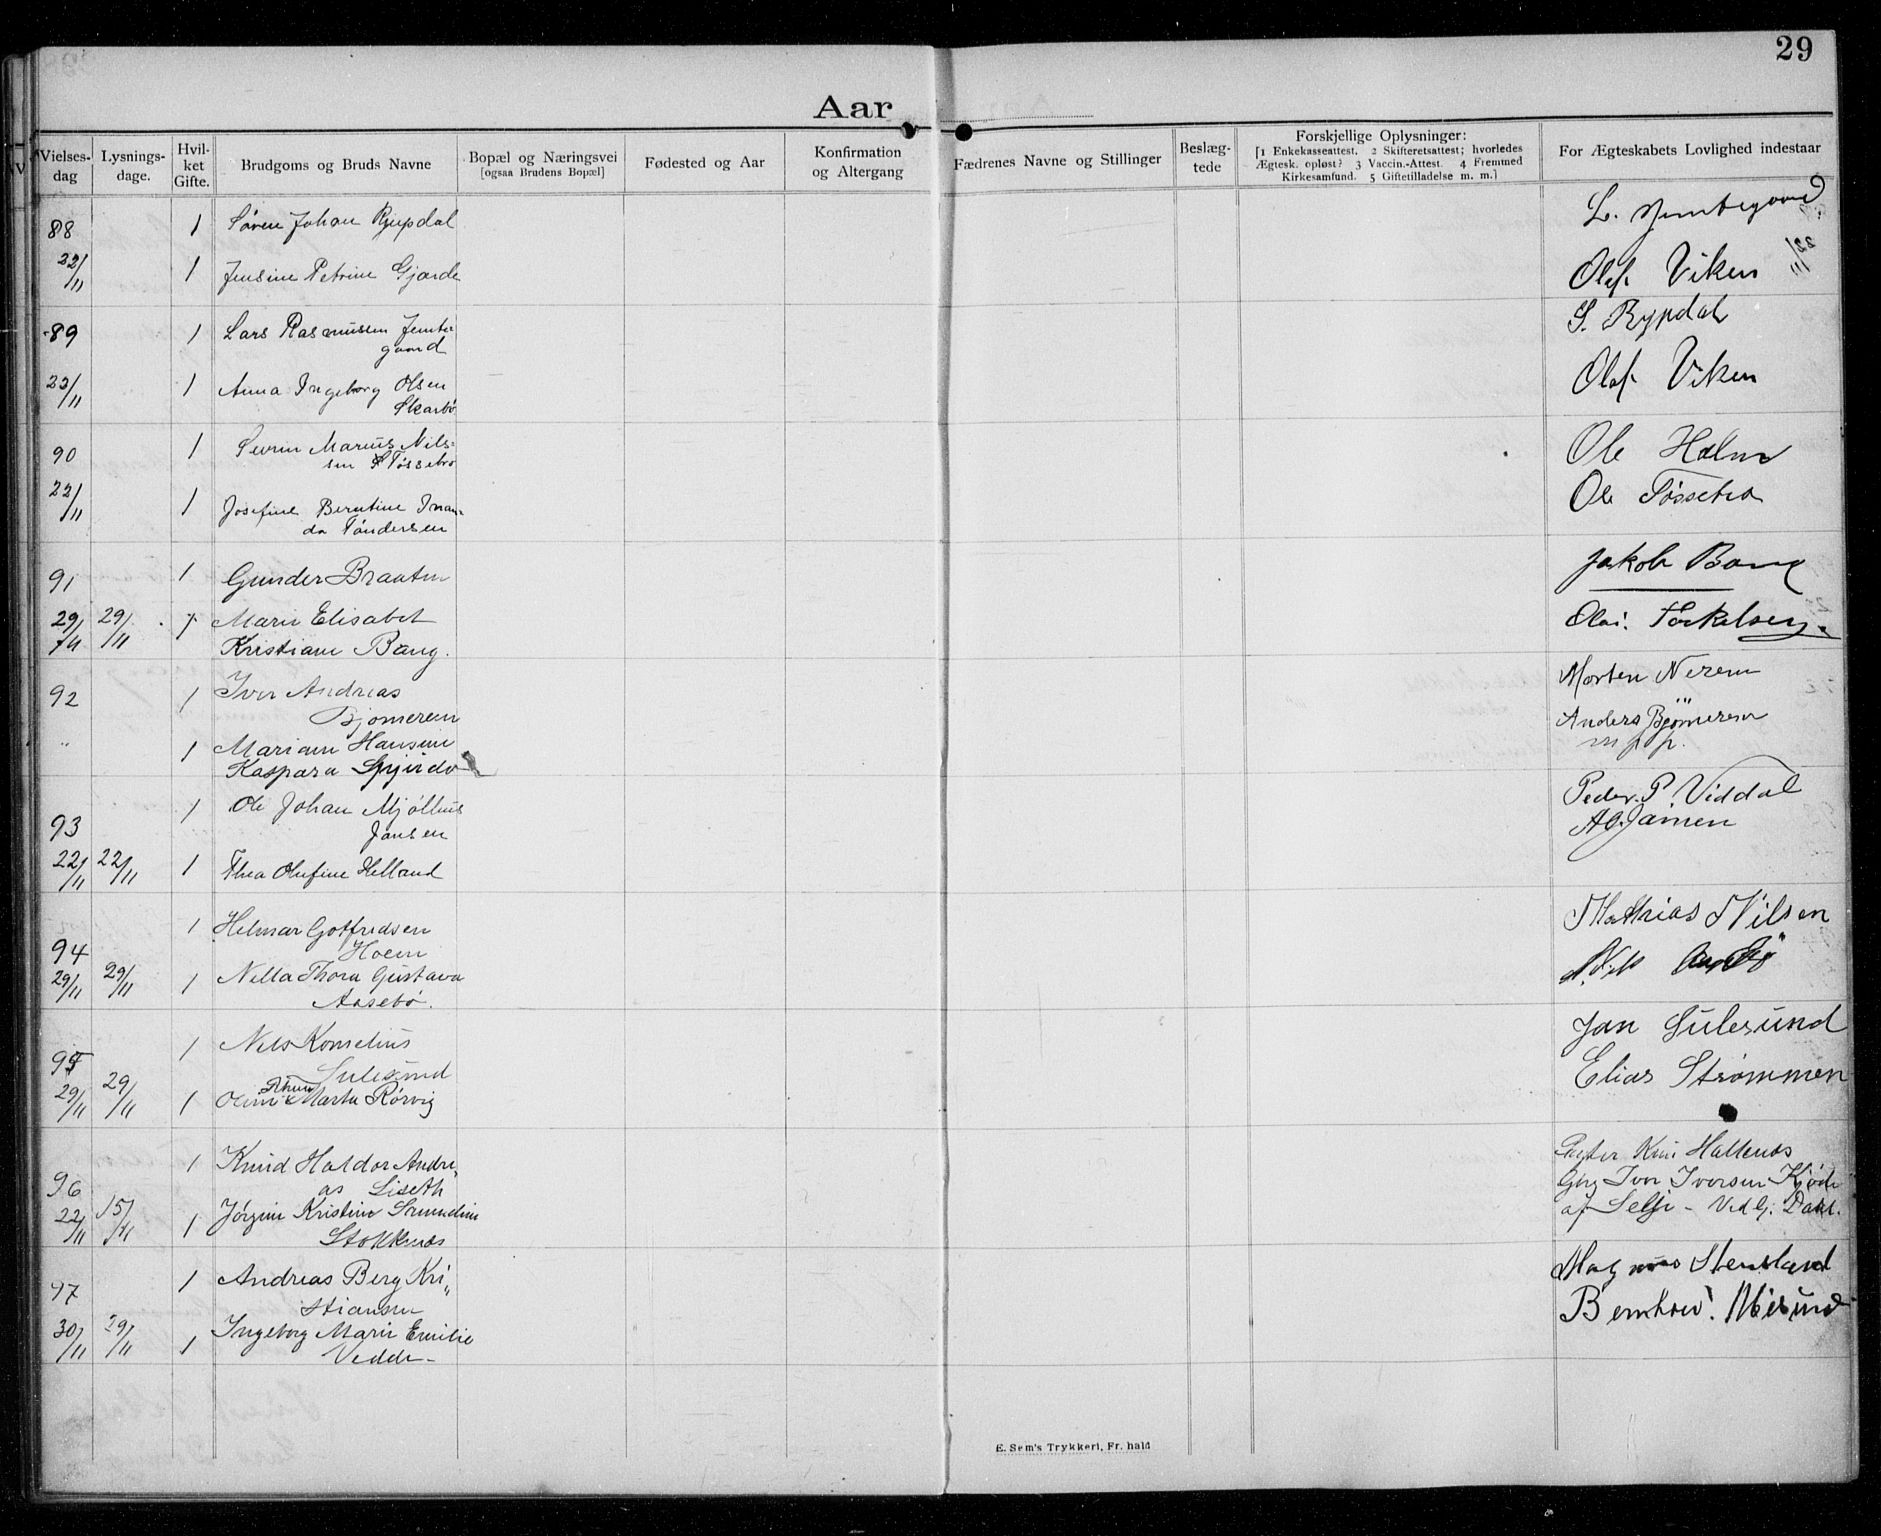 29
Aar
Vielses-dag
Lysnings-dage.
Hvil-ket Gifte.
Brudgoms og Bruds Navne
Bopæl og Næringsvei
[ogsaa Brudens Bopæl]
Fødested og Aar
Konfirmation og Altergang
Fædrenes Navne og Stillinger
Beslæg-tede
Forskjellige Oplysninger:
[1 Enkekasseattest. 2 Skifteretsattest; hvorledes
Ægtesk. opløst? 3 Vaccin.-Attest. 4 Fremmed
Kirkesamfund. 5 Giftetilladelse m. m.]
For Ægteskabets Lovlighed indestaar
88 1 Søren Johan Rypdal
22/11 1 Jensine Petrine Gjærde Olaf Viken 22/11
89 1 Lars Rasmussen Jemte- S. Rypdal
gaard
23/11 1 Anna Ingeborg Olsen Olaf Viken
Skarbø
90 1 Sevrin Marius Nils= Ole Holm
sen Tøssebro
22/11 1 Josefine Berntine Ole Tøssebro
Tøndersen
91 1 Gunder Braaten Jakob Bang
29/11 29/11 Marie Elisabet Torkelsen
Kristiane Bang.
92 1 Iver Andreas Morten Nerem
Bjømerem Anders Bjømerem
m p p.
" 1 Mariane Hansine
Kaspara
93 1 Ole Johan Mjølhus Peder P. Viddal
Jansen
22/11 22/11 1 Thea Olufine Helland
94 1 Helmar Gotfredsen Mathias Nilsen
Hoem
29/11 29/11 1 Nella Thora Gustava
Aasebø.
95 1 Nils Kornelius Jan Sulesund
Sulesund Elias Strømmen
29/11 29/11 1 Marta Rørvig
96 1 Knud Haldor Andre- Hallenås
as Liseth Iver Iversen
22/11 15/11 1 Jørgine Kristine af Selje - Ved G. Dahl.
Stokknæs
97 1 Andreas Berg Kri" Magnus Stensland
stiansen Bernhard. Misund
30/11 29/11 1 Ingeborg Marie Emilie
Vedde
E. Sem's Trykkeri, Fr. hald